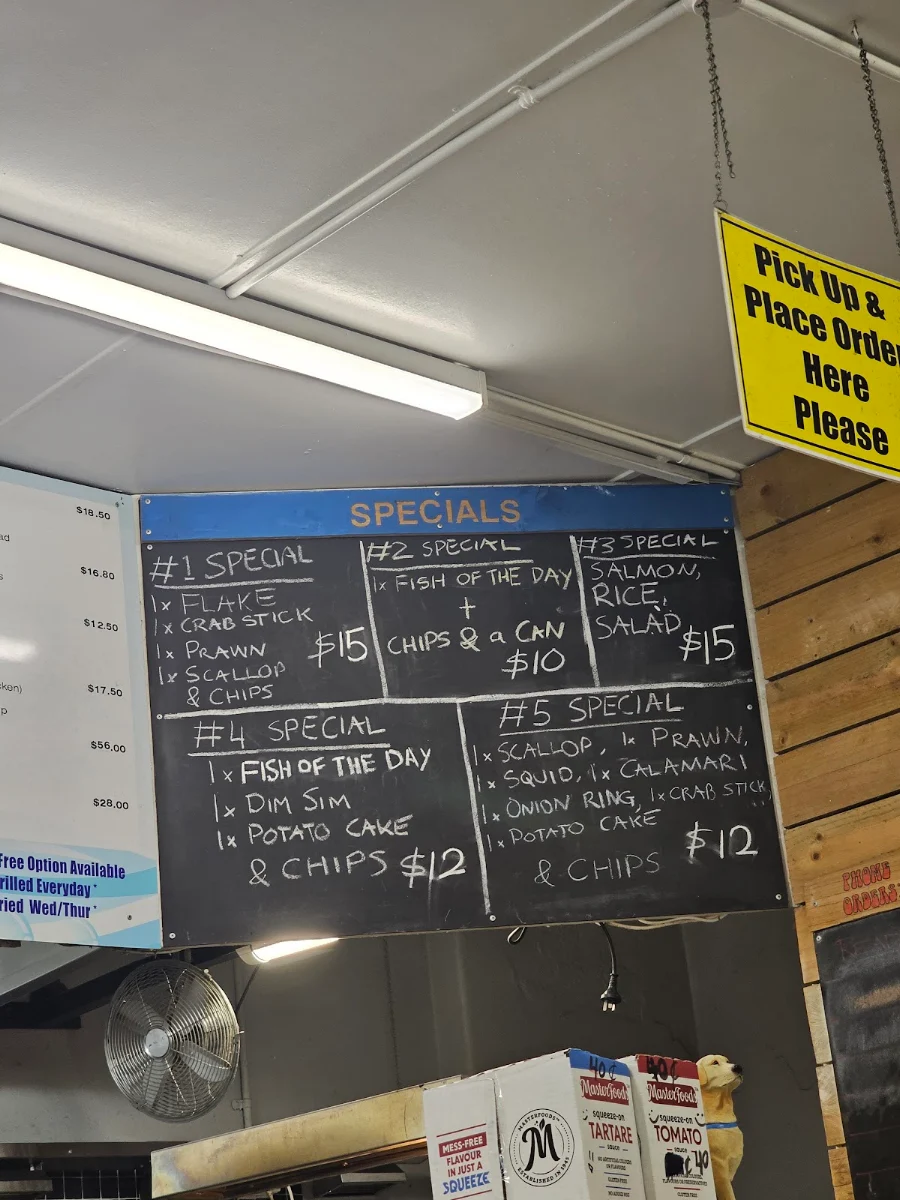 Pick Up &
Place Order
Here
Please
$18.50
$16.80
$12.50
$17.50
$56.00
$28.00
Free Option Available
Grilled Everyday *
Fried Wed/Thur *
SPECIALS
#1 SPECIAL
1x FLAKE
1x CRAB STICK
1x PRAWN
1x SCALLOP
& CHIPS
$15
#2 SPECIAL
1x FISH OF THE DAY
+
CHIPS & a CAN
$10
#3 SPECIAL
SALMON,
RICE,
SALAD
$15
#4 SPECIAL
1x FISH OF THE DAY
1x DIM SIM
1x POTATO CAKE
& CHIPS $12
#5 SPECIAL
1x SCALLOP, 1x PRAWN,
1x SQUID, 1x CALAMARI
1x ONION RING, 1x CRAB STICK
1x POTATO CAKE
& CHIPS
$12
PHONE
ORDERS
MESS-FREE
FLAVOUR
IN JUST A
SQUEEZE
MASTERFOODS
M
ESTABLISHED IN 1945
40¢
MasterFoods
SQUEEZE-ON
TARTARE
SAUCE
40¢
MasterFoods
SQUEEZE-ON
TOMATO
SAUCE